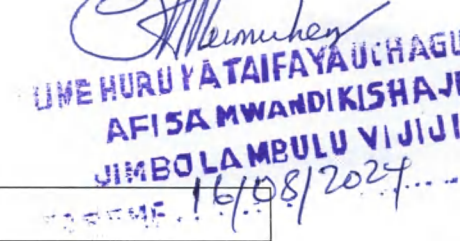 UME HURU YA TAIFA YA UCHAGU
AFISA MWANDIKISHAJI
JIMBO LA MBULU VIJIJI
16/08/2024